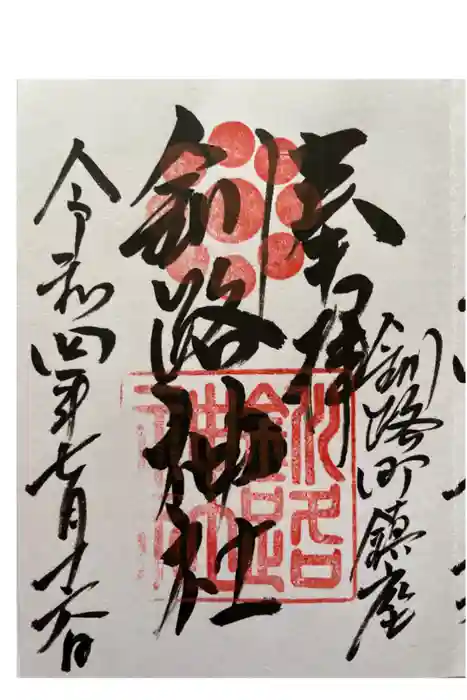 奉拝
釧路町鎮座
釧路神社
令和四年七月十六日